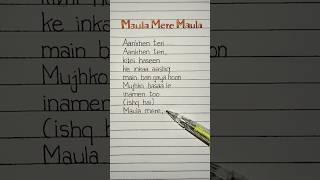 Maula Mere Maula
Aankhen teri
Aankhen teri,
kitni haseen
ke inka aashiq
main ban gaya hoon
Mujhko basaa le
inamen too
(ishq hai)
Maula mere,